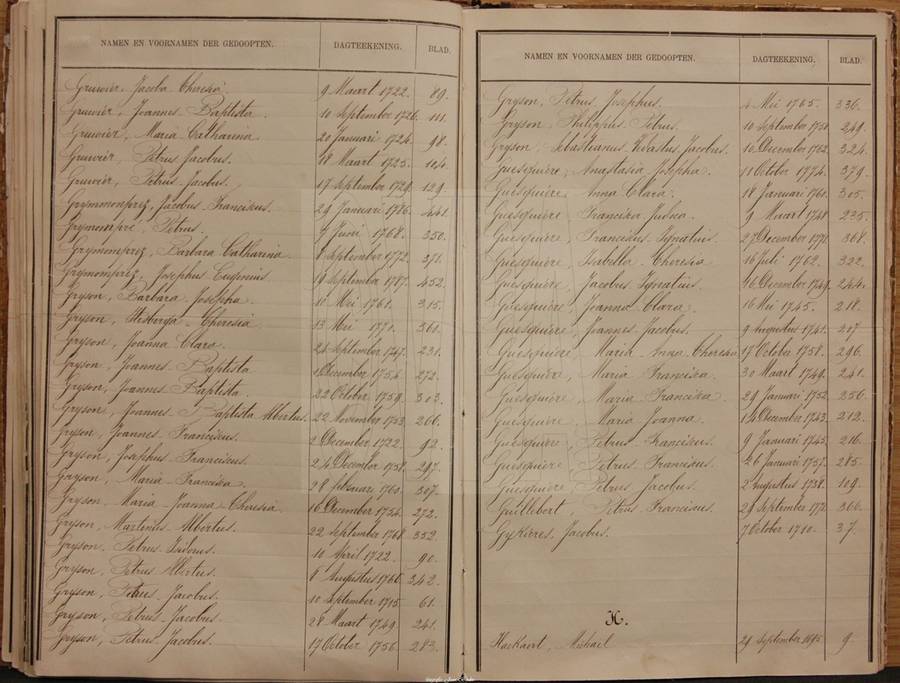 NAMEN EN VOORNAMEN DER GEDOOPTEN. DAGTEEKENING. BLAD.
Gruwier, Jacoba Theresia 9 Maart 1722. 89.
Gruwier, Joannes Baptista. 10 September 1726. 111.
Gruwier, Maria Catharina 20 Januari 1724. 98.
Gruwier, Petrus Jacobus. 18 Maart 1725. 104.
Gruwier, Petrus Jacobus. 17 September 1729. 129.
Grymmonprez, Jacobus Franciscus. 29 Januari 1786. 441.
Grymonpré, Petrus. 7 Juni 1768. 350.
Grymonprez, Barbara Catharina 1 September 1772. 371.
Grymonprez, Josephus Eugenius 19 September 1787. 452.
Gryson, Barbara Josepha. 11 Mei 1761. 315.
Gryson, Theresia 13 Mei 1771. 361.
Gryson, Joanna Clara. September 1747. 231.
Gryson, Joannes Baptista December 1754. 272.
Gryson, Joannes Baptista. 22 October 1759. 303.
Gryson, Joannes Baptista Albertus. 22 November 1753. 266.
Gryson, Joannes Franciscus. 2 December 1722. 92.
Gryson, Josephus Franciscus. 24 December 1758. 297.
Gryson, Maria Francisca. 28 Februari 1760. 307.
Gryson, Maria Joanna Theresia 16 December 1754. 272.
Gryson, Martinus Albertus. 22 September 1768. 352.
Gryson, Petrus Isidorus. 10 April 1722. 90.
Gryson, Petrus Albertus. 6 Augustus 1766. 342.
Gryson, Petrus Jacobus. 10 September 1715. 61.
Gryson, Petrus Jacobus. 28 Maart 1749. 241.
Gryson, Petrus Jacobus. 17 October 1756. 283.
NAMEN EN VOORNAMEN DER GEDOOPTEN. DAGTEEKENING. BLAD.
Gryson, Petrus Josephus. Mei 1765. 336.
Gryson, Philippus Petrus. 10 September 1750. 249.
Gryson, Sebastianus Jacobus. 10 December 1762. 324.
Guesquiere, Anastasia Josepha. 11 October 1774. 379.
Guesquiere, Anna Clara. 18 Januari 1760. 305.
Guesquiere, Francisca Judoca. Maart 1748 225.
Guesquiere, Franciscus Ignatius. 27 December 1771. 368.
Guesquiere, Isabella Theresia 16 Juli 1762. 322.
Guesquière, Jacobus Ignatius. 16 December 1749. 244.
Guesquière, Joanna Clara. 16 Mei 1745. 218.
Guesquière, Joannes Jacobus. 9 Augustus 1741. 207
Guesquière, Maria Anna Theresia 17 October 1758. 296.
Guesquière, Maria Francisca. 30 Maart 1749. 241.
Guesquière, Maria Francisca 29 Januari 1752. 256.
Guesquière, Maria Joanna. 14 December 1743. 212.
Guesquière, Petrus Franciscus. 9 Januari 1745. 216.
Guesquière, Petrus Franciscus. 26 Januari 1757. 285.
Guesquiere, Petrus Jacobus. 2 Augustus 109.
Guillebert, Petrus Franciscus. September 366.
Jacobus. 7 October 1710. 37.
H.
Haekaert, Michael 29 September 1695. 9.